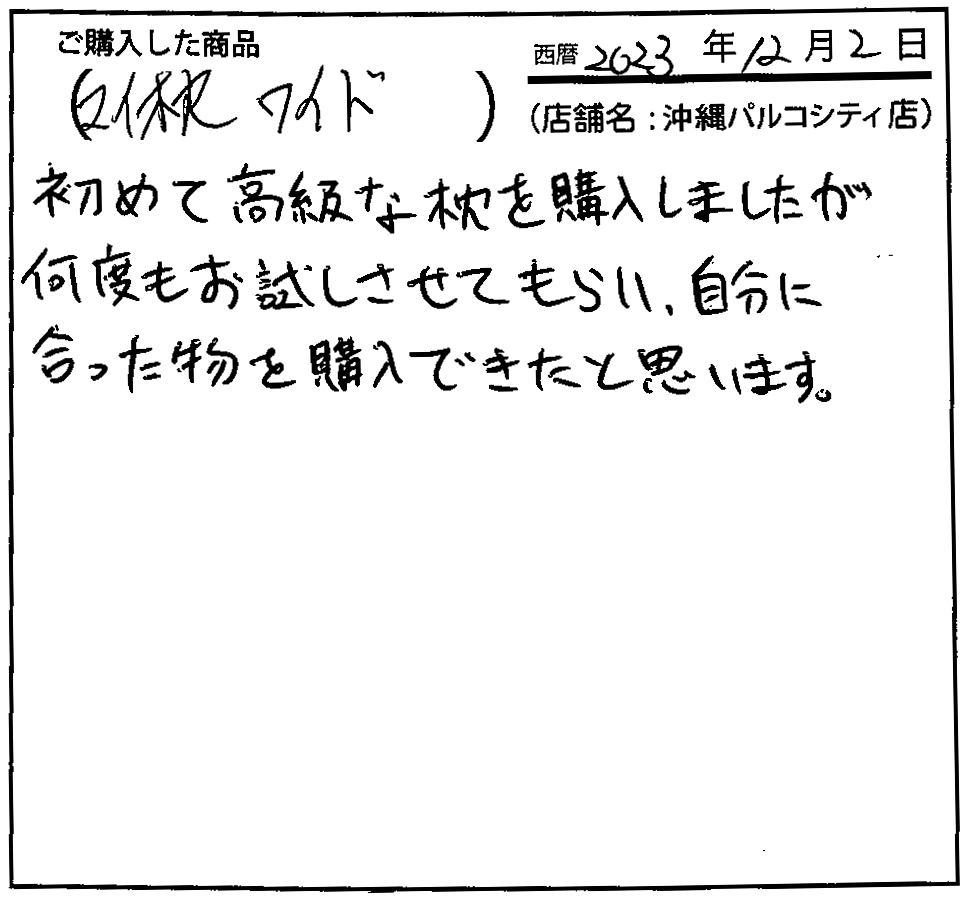 ご購入した商品
西暦 2023 年 12 月 2 日
( 枕 ワイド )
(店舗名：沖縄パルコシティ店)
初めて高級な枕を購入しましたが
何度もお試しさせてもらい、自分に
合った物を購入できたと思います。